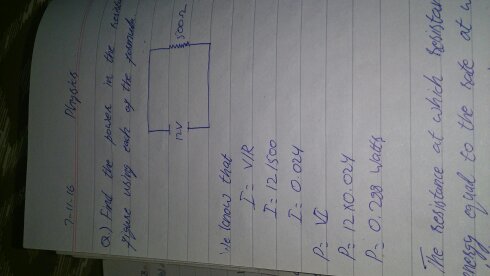 7-11-16 Physics
Q) Find the power in the
figure using each of the formula.
500Ω
12V
We know that
I = V/R
I = 12/500
I = 0.024
P = VI
P = 12x0.024
P = 0.288 Watts
The Resistance at which Resistance
energy equal to the rate at